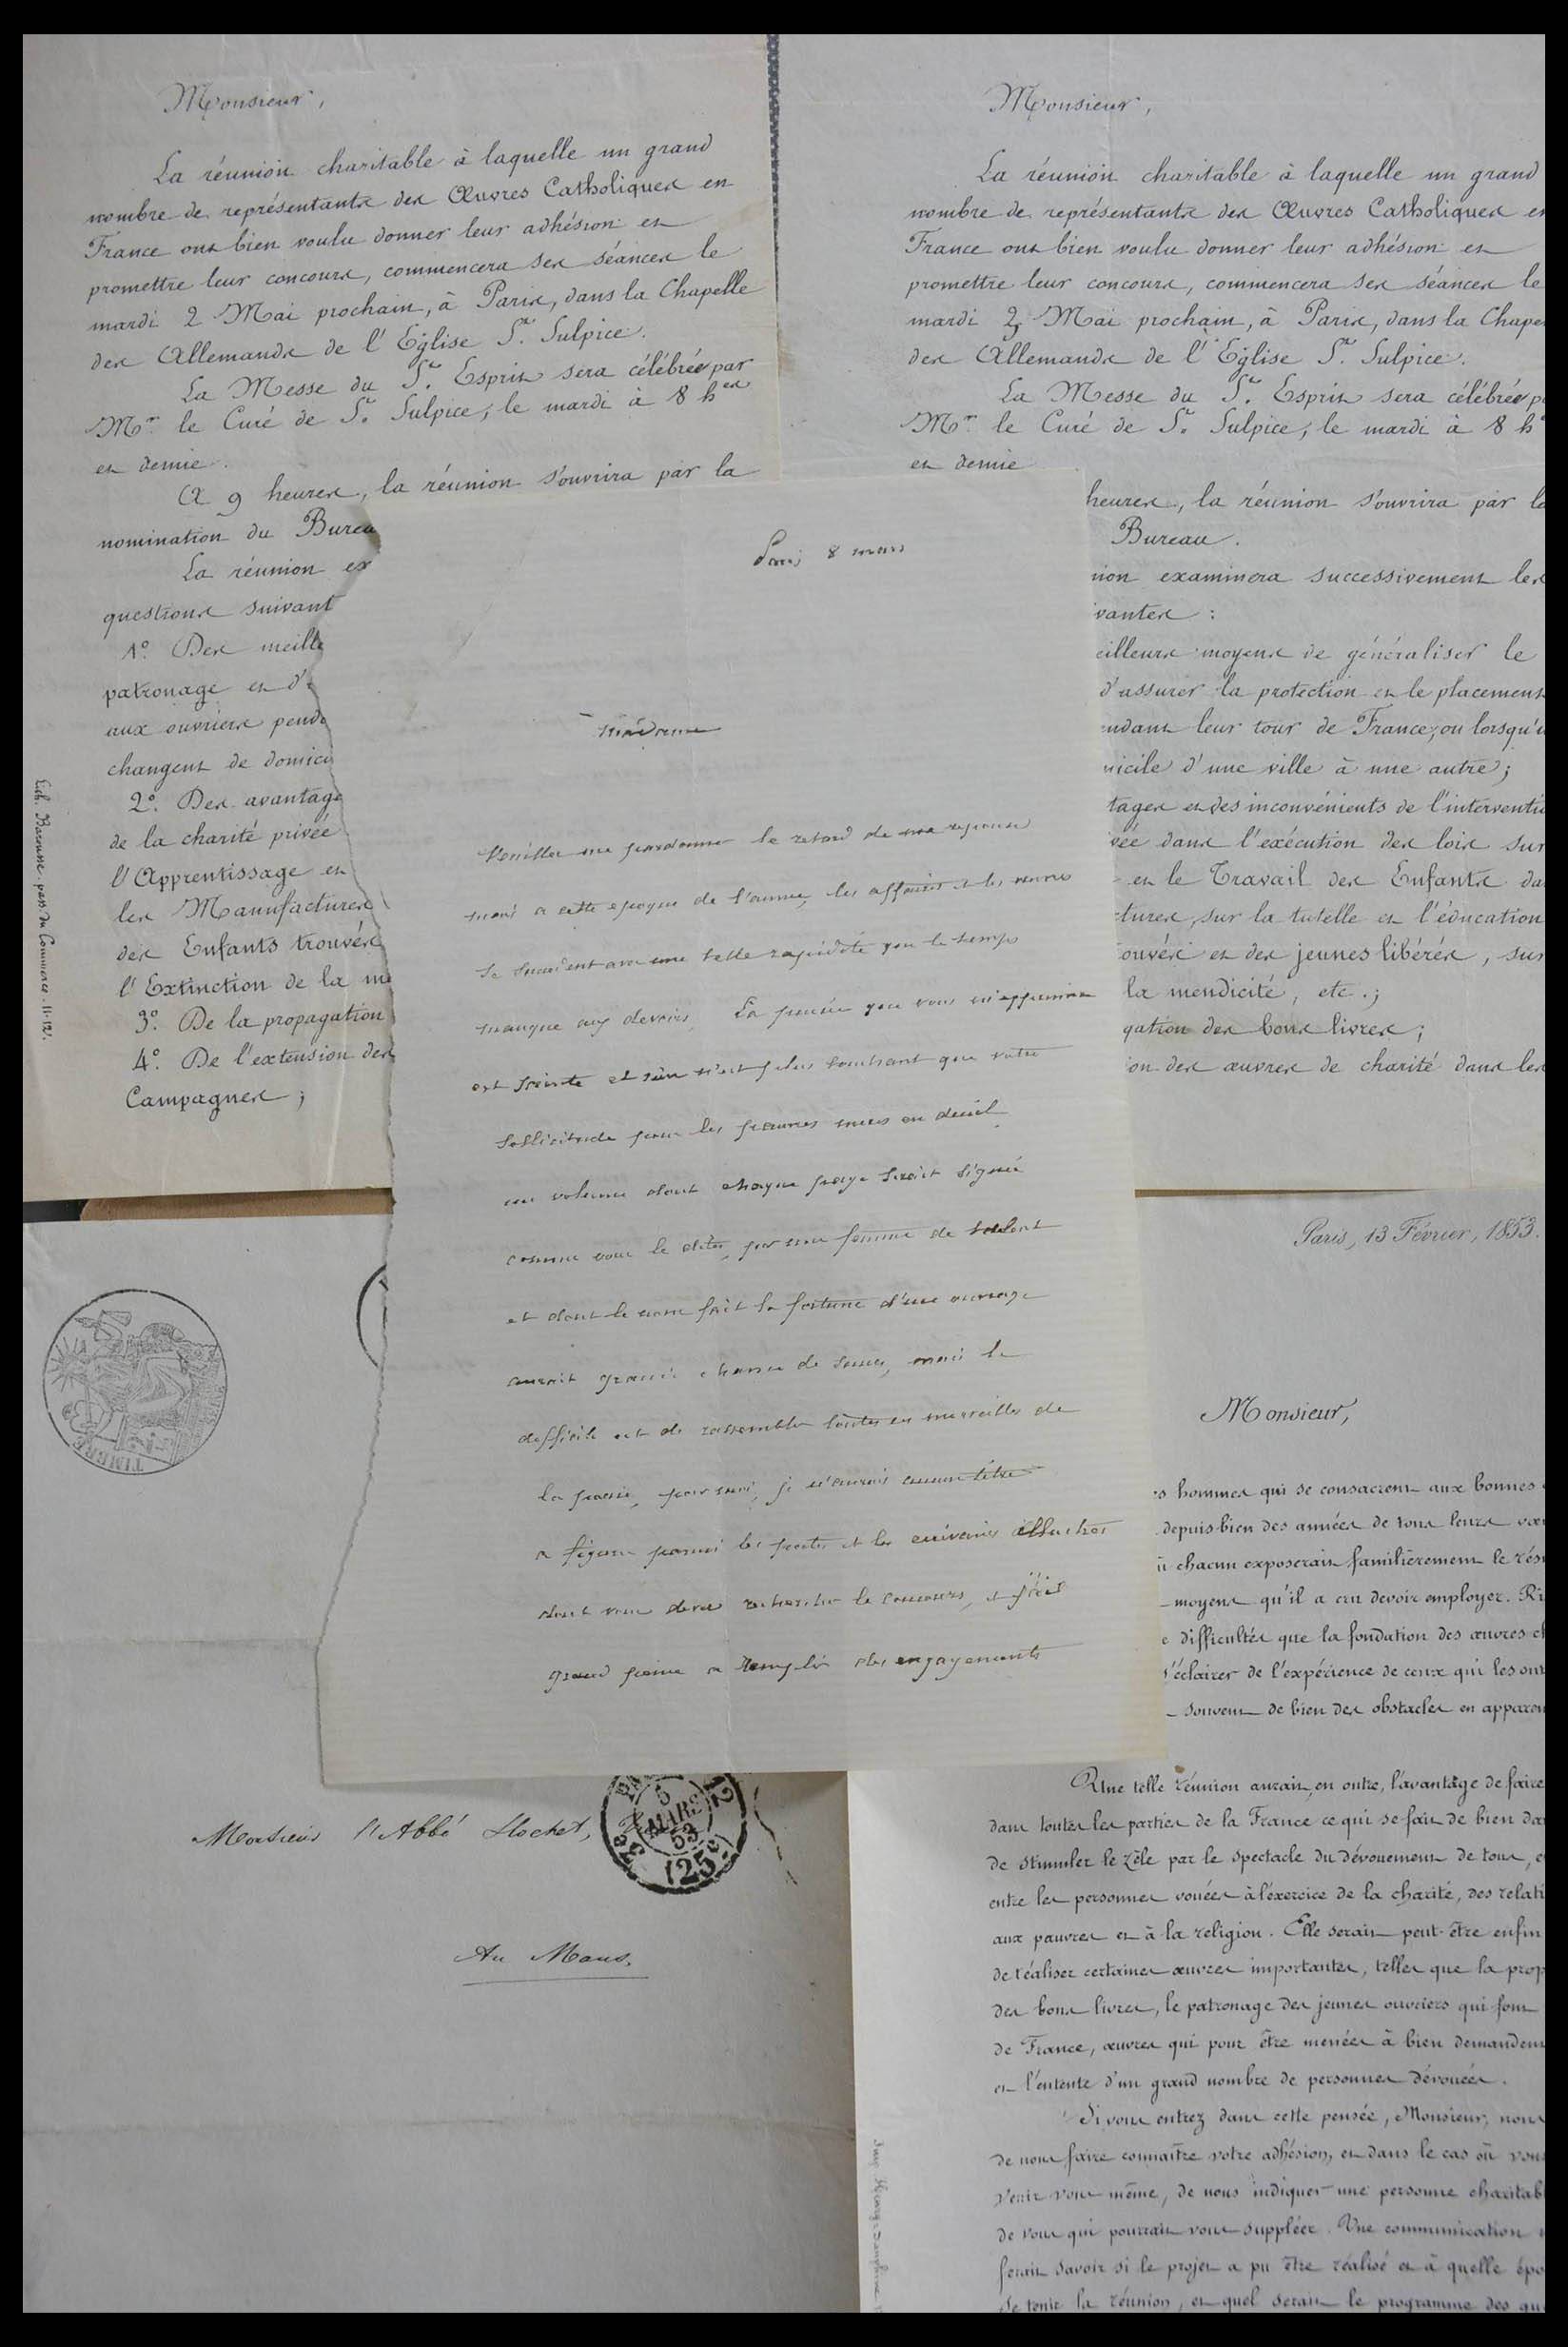 Monsieur,
La réunion charitable à laquelle un grand
nombre de représentants des Œuvres Catholiques en
France ont bien voulu donner leur adhésion et
promettre leur concours, commencera ses séances le
mardi 2 Mai prochain, à Paris, dans la Chapelle
des Allemands de l'Eglise St. Sulpice.
La Messe du St. Esprit sera célébrée par
Mr. le Curé de St. Sulpice, le mardi à 8 hes
et demie.
A 9 heures, la réunion s'ouvrira par la
nomination du Burea
La réunion ex
questions suivant
1º. Des meille
patronage et d'
aux ouvriers penda
changent de domici
2º. Des avantage
de la charité privée
l'Apprentissage et
les Manufactures
des Enfants trouvés
l'Extinction de la me
3º. De la propagation
4º. De l'extension des
Campagnes ;
Lith. Barousse. pass. du Commerce. 11-12.
Monsieur,
La réunion charitable à laquelle un grand
nombre de représentants des Œuvres Catholiques en
France ont bien voulu donner leur adhésion et
promettre leur concours, commencera ses séances le
mardi 3 Mai prochain, à Paris, dans la Chape
des Allemands de l'Eglise St. Sulpice.
La Messe du St. Esprit sera célébrée p
Mr. le Curé de St. Sulpice, le mardi à 8 h
et demie
heures, la réunion s'ouvrira par la
Bureau.
nion examinera successivement les
vantes :
eilleurs moyens de généraliser le
d'assurer la protection et le placement
endant leur tour de France, ou lorsqu'i
micile d'une ville à une autre ;
tages et des inconvénients de l'interventio
vée dans l'exécution des lois sur
et le Travail des Enfants da
ctures, sur la tutelle et l'éducation
ouvés et des jeunes libérés, sur
la mendicité, etc. ;
gation des bons livres ;
on des œuvres de charité dans les
Paris 8 mars
Madame
Veuillez me pardonner le retard de ma reponse
mais a cette epoque de l'année, les affaires et les
se succedent avec une telle rapidité que le temps
manque aux devoirs. La pensée que vous m'exprimez
est sainte et rien n'est plus touchant que votre
sollicitude pour les pauvres meres en deuil
un volume dont chaque page serait signée
comme vous le dites, par une femme de talent
et dont le nom fait la fortune d'un ouvrage
aurait grande chance de succes, mais le
difficile est de rassembler toutes ces merveilles de
la poesie, pour moi, je n'aurais aucun titre
a figurer parmi les poetes et les ecrivains illustres
dont vous devez rechercher le concours, et j'ai
grand peine a remplir des engagements
TIMBRE
Monsieur l'Abbé Lochet,
5
MARS
53
(25c)
Au Mans.
Paris, 13 Février, 1853.
Monsieur,
s hommes qui se consacrent aux bonnes
depuis bien des années de tous leurs vœu
ù chacun exposerait familièrement le rés
moyens qu'il a cru devoir employer. Ri
e difficultés que la fondation des œuvres ch
s'éclairer de l'expérience de ceux qui les ont
souvent de bien des obstacles en apparen
Une telle réunion aurait, en outre, l'avantage de faire
dans toutes les parties de la France ce qui se fait de bien da
de stimuler le zèle par le spectacle du dévouement de tous, e
entre les personnes vouées à l'exercice de la charité, des relati
aux pauvres et à la religion. Elle serait peut-être enfin
de réaliser certaines œuvres importantes, telles que la prop
des bons livres, le patronage des jeunes ouvriers qui font
de France, œuvres qui pour être menées à bien demandent
et l'entente d'un grand nombre de personnes dévouées.
Si vous entrez dans cette pensée, Monsieur, nous
de nous faire connaître votre adhésion, et dans le cas où vous
venir vous-même, de nous indiquer une personne charitab
de vous qui pourrait vous suppléer. Une communication
ferait savoir si le projet a pu être réalisé et à quelle épo
se tenir la réunion, et quel serait le programme des qu